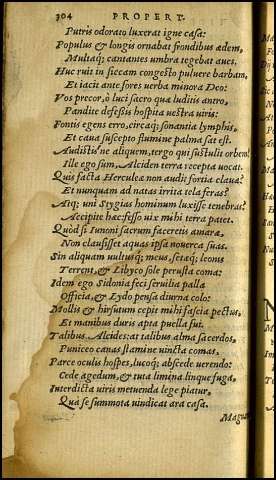 304 PROPERT.
Putris odorato luxerat igne casa:
Populus & longis ornabat frondibus ædem,
Multaq́; cantantes umbra tegebat aues.
Huc ruit in siccam congesto puluere barbam,
Et iacit ante fores uerba minora Deo:
Vos precor, ò luci sacro qua luditis antro,
Pandite defessis hospita uestra uiris:
Fontis egens erro, circaq́; sonantia lymphis,
Et caua suscepto flumine palma sat est.
Audistis'ne aliquem, tergo qui sustulit orbem?
Ille ego sum, Alciden terra recepta uocat.
Quis facta Herculeæ non audit fortia clauæ?
Et nunquam ad natas irrita tela feras?
Atq; uni Stygias hominum luxisse tenebras?
Accipite hæc: fesso uix mihi terra patet.
Quòd si Iunoni sacrum faceretis amaræ,
Non clausisset aquas ipsa nouerca suas.
Sin aliquam uultusq́; meus, setæq́; leonis
Terrent, & Libyco sole perusta coma:
Idem ego Sidonia feci seruilia palla
Officia, & Lydo pensa diurna colo:
Mollis & hirsutum cepit mihi fascia pectus,
Et manibus duris apta puella fui.
Talibus Alcides: at talibus alma sacerdos,
Puniceo canas stamine uincta comas,
Parce oculis hospes, lucoq́; abscede uerendo:
Cede agedum, & tuta limina linque fuga,
Interdicta uiris metuenda lege piatur,
Quæ se summota uindicat ara casa.
Magno